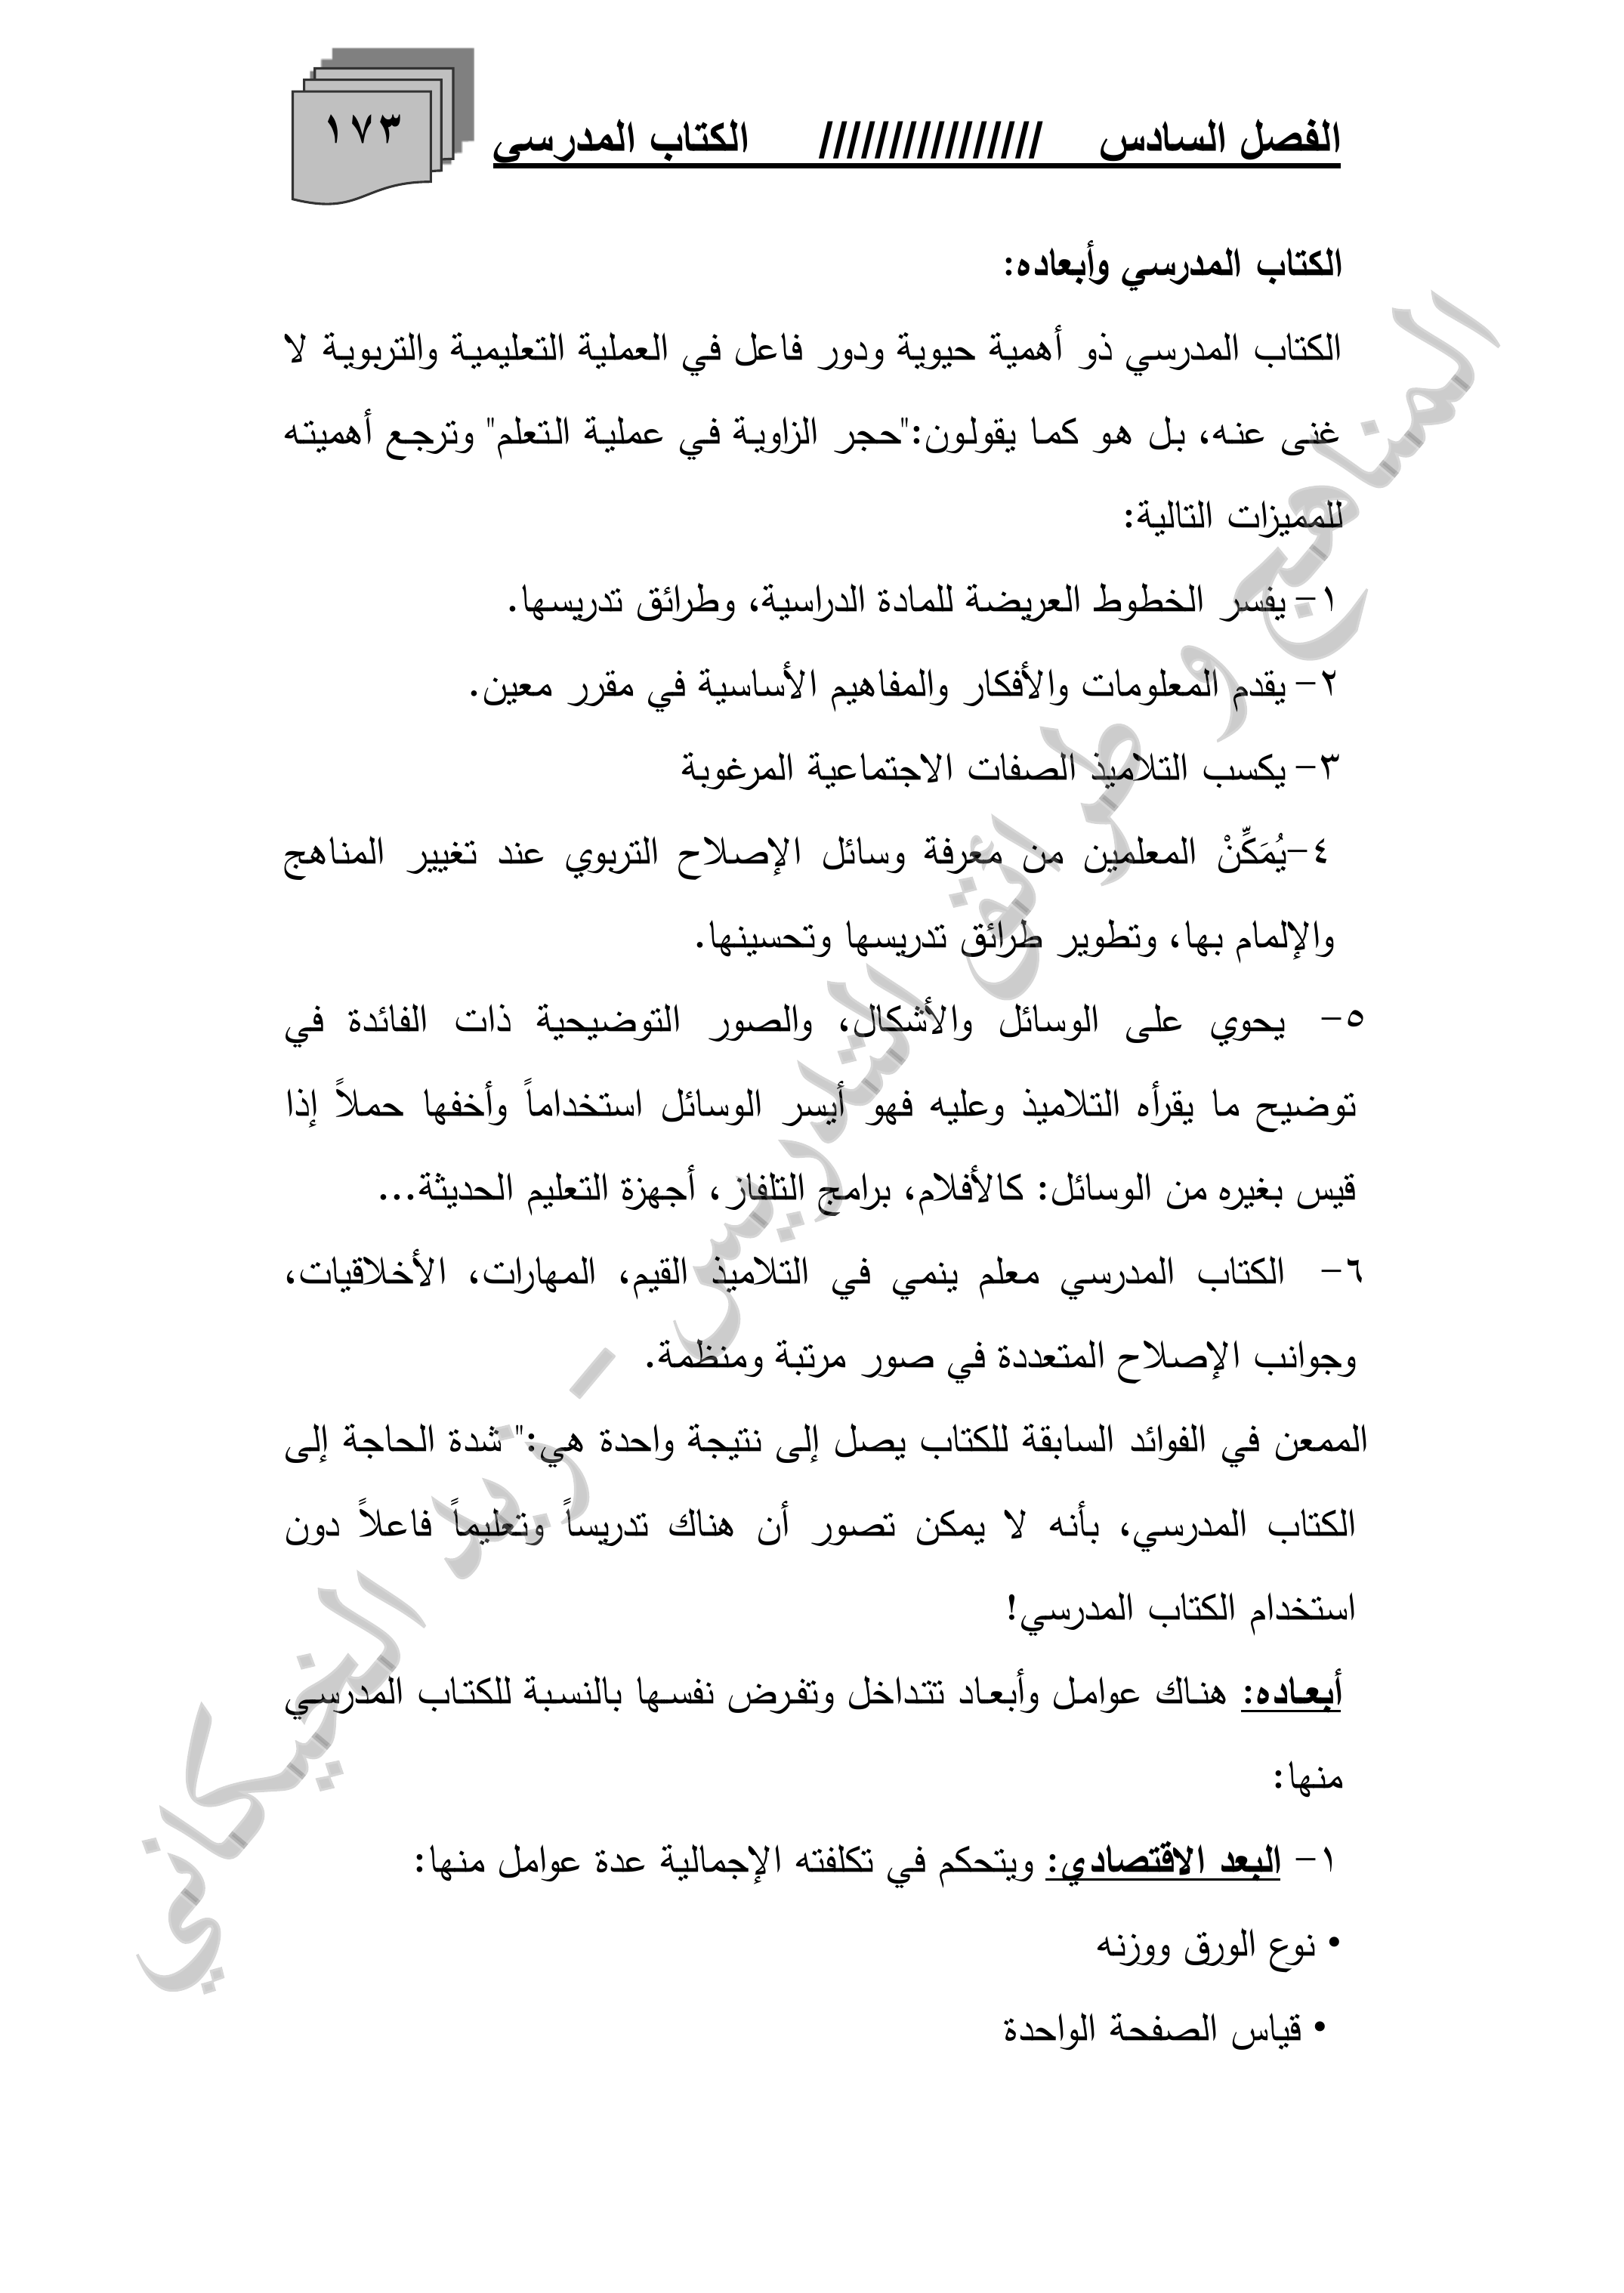 الفصل السادس //////////////// الكتاب المدرسي ١٧٣
الكتاب المدرسي وأبعاده:
الكتاب المدرسي ذو أهمية حيوية ودور فاعل في العملية التعليمية والتربوية لا
غنى عنه، بل هو كما يقولون:"حجر الزاوية في عملية التعلم" وترجع أهميته
للمميزات التالية:
١- يفسر الخطوط العريضة للمادة الدراسية، وطرائق تدريسها.
٢- يقدم المعلومات والأفكار والمفاهيم الأساسية في مقرر معين.
٣- يكسب التلاميذ الصفات الاجتماعية المرغوبة
٤-يُمَكِّنْ المعلمين من معرفة وسائل الإصلاح التربوي عند تغيير المناهج
والإلمام بها، وتطوير طرائق تدريسها وتحسينها.
٥- يحوي على الوسائل والأشكال، والصور التوضيحية ذات الفائدة في
توضيح ما يقرأه التلاميذ وعليه فهو أيسر الوسائل استخداماً وأخفها حملاً إذا
قيس بغيره من الوسائل: كالأفلام، برامج التلفاز، أجهزة التعليم الحديثة...
٦- الكتاب المدرسي معلم ينمي في التلاميذ القيم، المهارات، الأخلاقيات،
وجوانب الإصلاح المتعددة في صور مرتبة ومنظمة.
الممعن في الفوائد السابقة للكتاب يصل إلى نتيجة واحدة هي:" شدة الحاجة إلى
الكتاب المدرسي، بأنه لا يمكن تصور أن هناك تدريساً وتعليماً فاعلاً دون
استخدام الكتاب المدرسي!
أبعاده: هناك عوامل وأبعاد تتداخل وتفرض نفسها بالنسبة للكتاب المدرسي
منها:
١- البعد الاقتصادي: ويتحكم في تكلفته الإجمالية عدة عوامل منها:
• نوع الورق ووزنه
• قياس الصفحة الواحدة
المناهج و طرائق التدريس - زيد الخيكاني